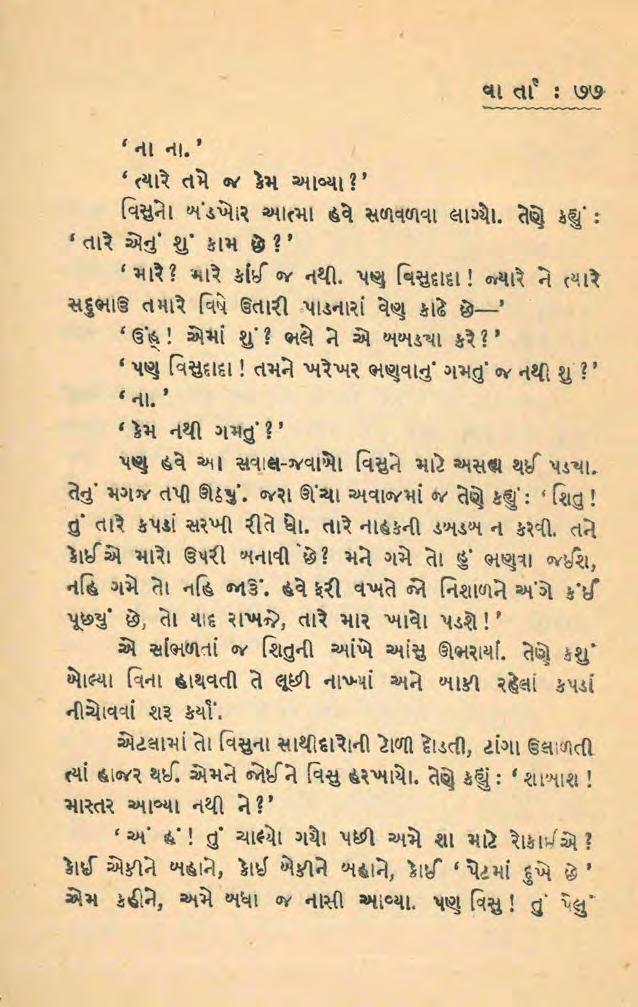 વા ર્તા : ૭૭
‘ ના ના. ’
‘ ત્યારે તમે જ કેમ આવ્યા ? ’
વિસુનો બંડખોર આત્મા હવે સળવળવા લાગ્યો. તેણે કહ્યું :
‘ તારે એનું શું કામ છે ? ’
‘ મારે ? મારે કાંઈ જ નથી. પણ વિસુદાદા ! જ્યારે ને ત્યારે
સદુભાઉ તમારે વિષે ઉતારી પાડનારાં વેણ કાઢે છે—’
‘ ઉંહ્ ! એમાં શું ? ભલે ને એ બબડ્યા કરે ? ’
‘ પણ વિસુદાદા ! તમને ખરેખર ભણવાનું ગમતું જ નથી શું ? ’
‘ ના. ’
‘ કેમ નથી ગમતું ? ’
પણ હવે આ સવાલ-જવાબો વિસુને માટે અસહ્ય થઈ પડ્યા.
તેનું મગજ તપી ઊઠ્યું. જરા ઊંચા અવાજમાં જ તેણે કહ્યું : ‘ શિતુ !
તું તારે કપડાં સરખી રીતે ધો. તારે નાહકની ડબડબ ન કરવી. તને
કોઈએ મારો ઉપરી બનાવી છે ? મને ગમે તો હું ભણવા જઈશ,
નહિ ગમે તો નહિ જાઉં. હવે ફરી વખતે જો નિશાળને અંગે કંઈ
પૂછ્યું છે, તો યાદ રાખજે, તારે માર ખાવો પડશે ! ’
એ સાંભળતાં જ શિતુની આંખે આંસુ ઊભરાયાં. તેણે કશું
બોલ્યા વિના હાથવતી તે લૂછી નાખ્યાં અને બાકી રહેલાં કપડાં
નીચોવવાં શરૂ કર્યાં.
એટલામાં તો વિસુના સાથીદારોની ટોળી દોડતી, ટાંગા ઉલાળતી
ત્યાં હાજર થઈ. એમને જોઈને વિસુ હરખાયો. તેણે કહ્યું : ‘ શાબાશ !
માસ્તર આવ્યા નથી ને ? ’
‘ અં હં ! તું ચાલ્યો ગયો પછી અમે શા માટે રોકાઈએ ?
કોઈ એકીને બહાને, કોઈ બેકીને બહાને, કોઈ ‘ પેટમાં દુખે છે ’
એમ કહીને, અમે બધા જ નાસી આવ્યા. પણ વિસુ ! તું પેલું